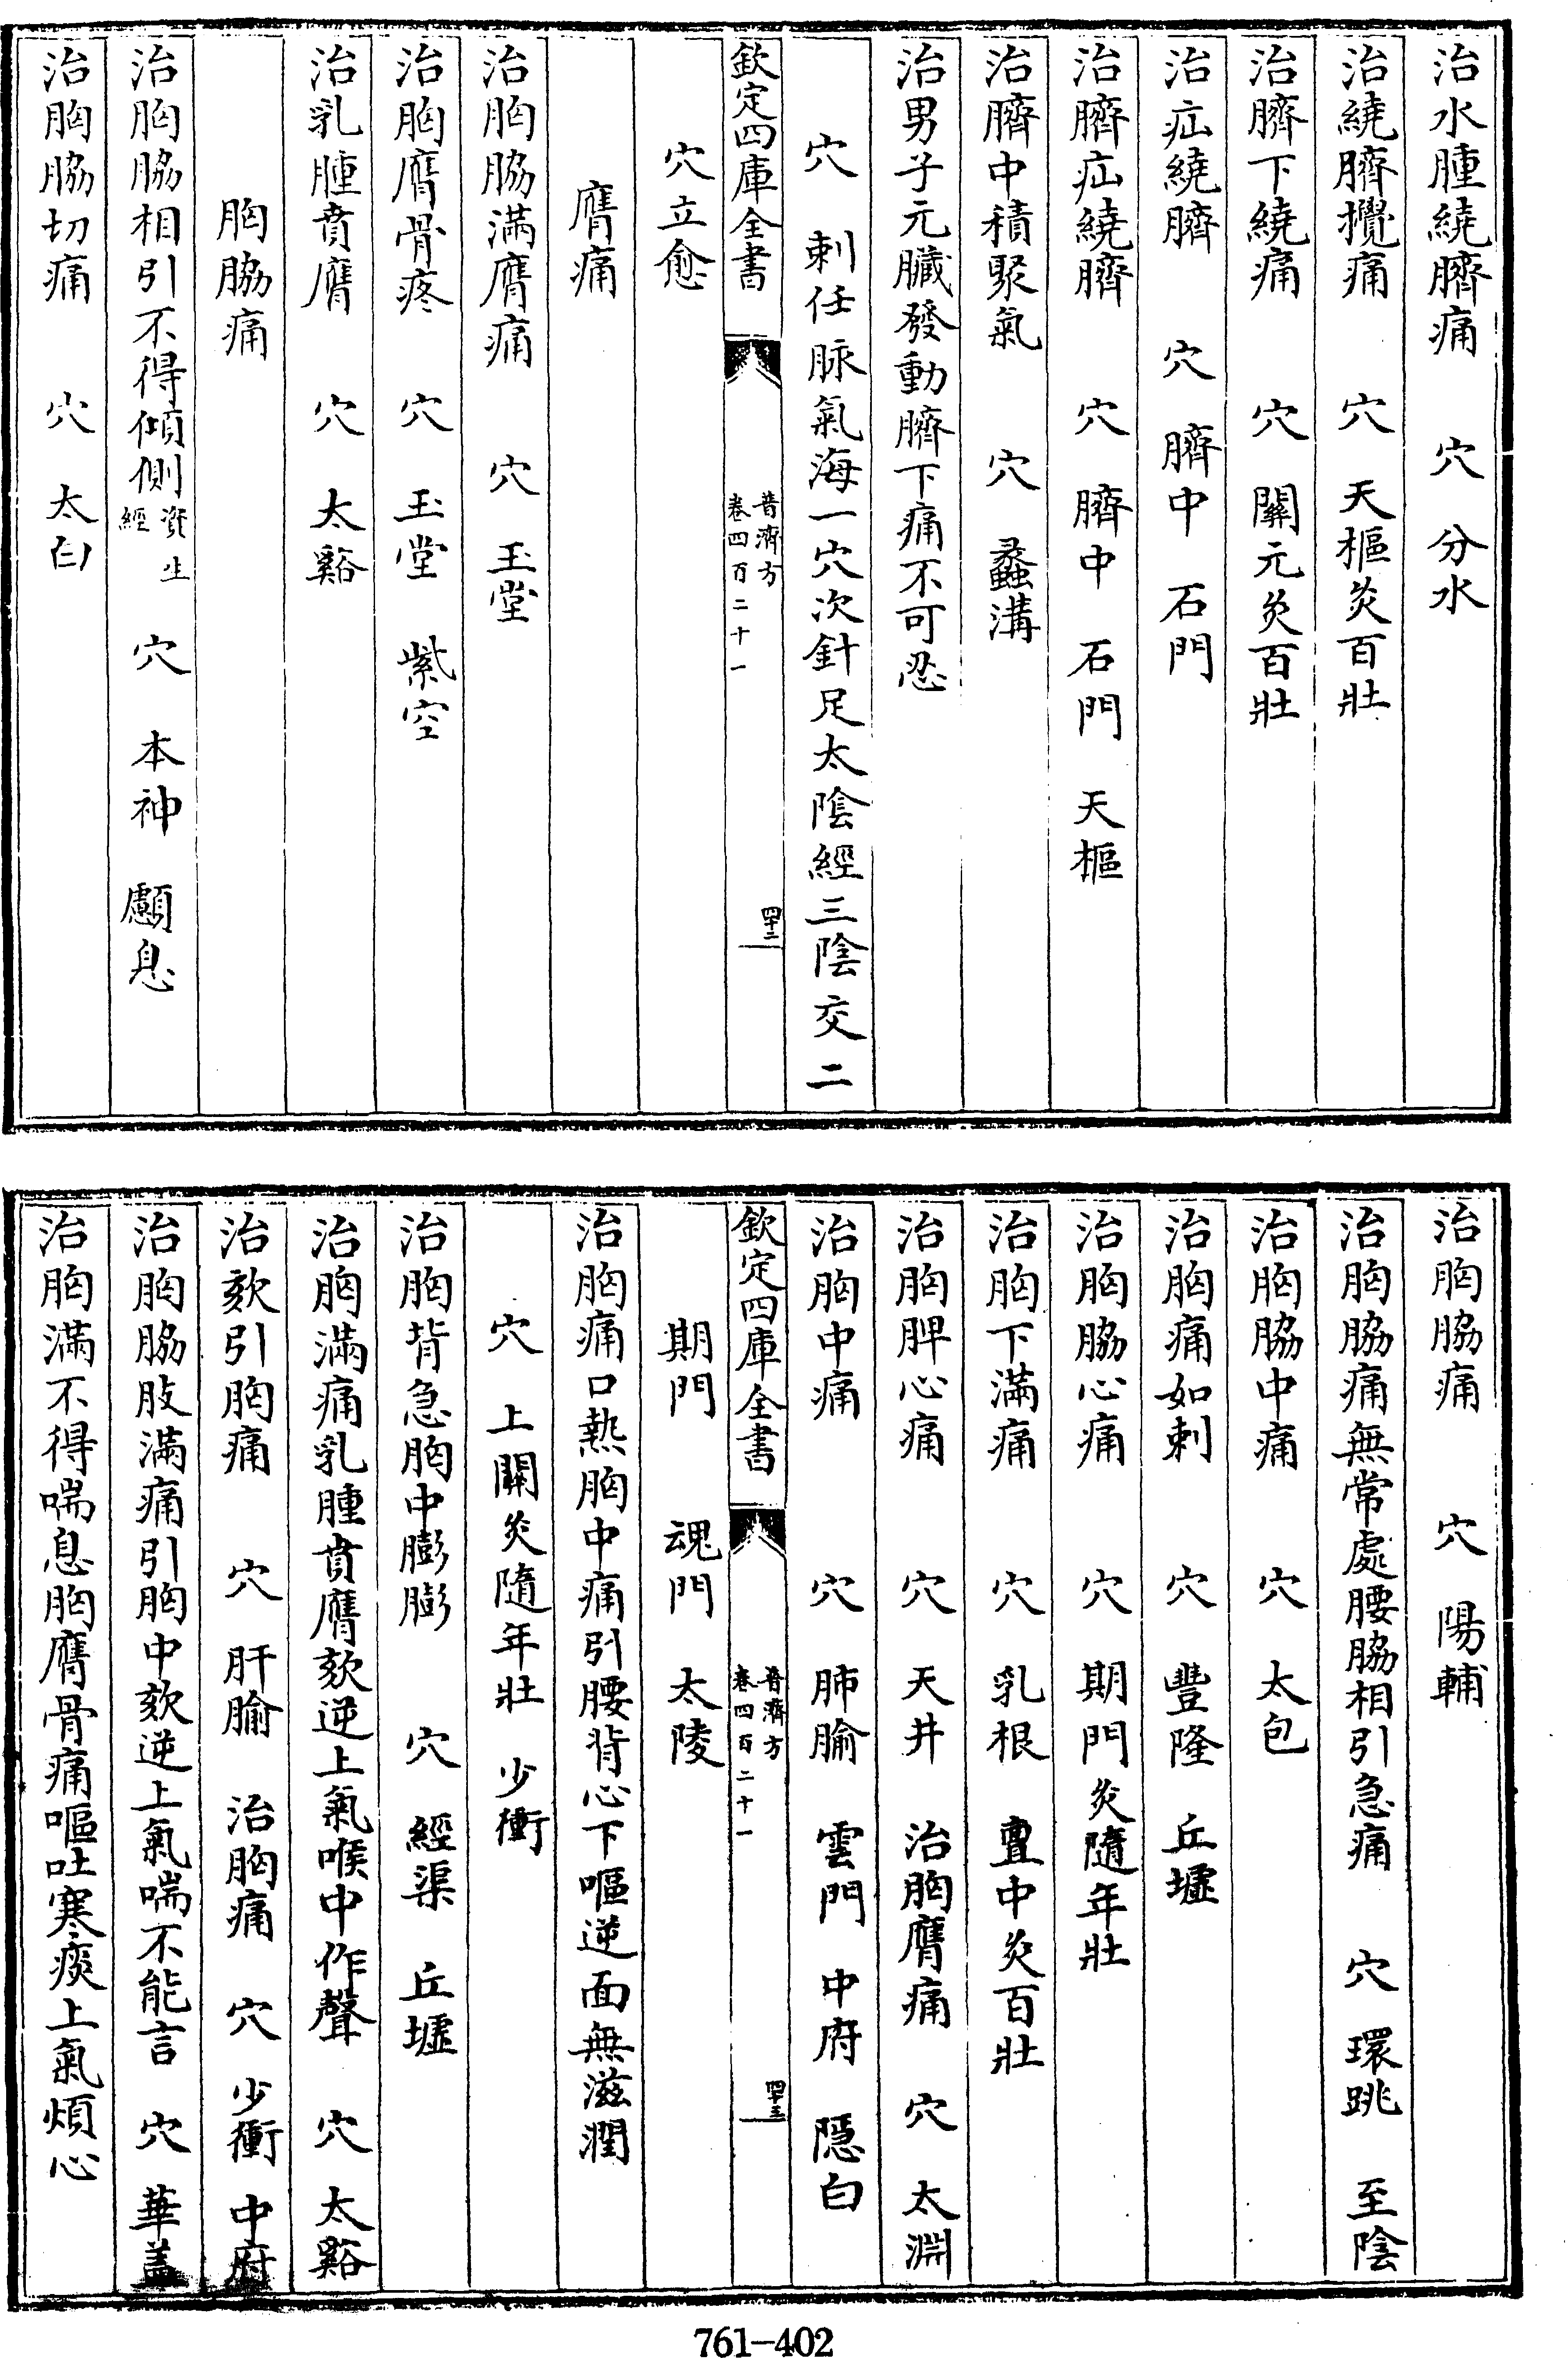 治水腫繞臍痛　穴　分水
治繞臍攪痛　穴　天樞灸百壯
治臍下繞痛　穴　關元灸百壯
治疝繞臍　穴　臍中　石門
治臍疝繞臍　穴　臍中　石門　天樞
治臍中積聚氣　穴　蠡溝
治男子元臟發動臍下痛不可忍
穴　刺任脉氣海一穴次針足太陰經三陰交二
欽定四庫全書　普濟方卷四百二十一　四十二
穴立愈
膺痛
治胸脇滿膺痛　穴　玉堂
治胸膺骨疼　穴　玉堂　紫空
治乳腫賁膺　穴　太谿
胸脇痛
治胸脇相引不得傾側資生經　穴　本神　顱息
治胸脇切痛　穴　太白
治胸脇痛　穴　陽輔
治胸脇痛無常處腰脇相引急痛　穴　環跳　至陰
治胸脇中痛　穴　太包
治胸痛如刺　穴　豐隆　丘墟
治胸脇心痛　穴　期門灸隨年壯
治胸下滿痛　穴　乳根　亶中灸百壯
治胸脾心痛　穴　天井　治胸膺痛　穴　太淵
治胸中痛　穴　肺腧　雲門　中府　隱白
欽定四庫全書　普濟方卷四百二十一　四十三
期門　魂門　太陵
治胸痛口熱胸中痛引腰背心下嘔逆面無滋潤
穴　上關灸隨年壯　少衝
治胸背急胸中膨膨　穴　經渠　丘墟
治胸滿痛乳腫賁膺欬逆上氣喉中作聲　穴　太谿
治欬引胸痛　穴　肝腧　治胸痛　穴　少衝　中府
治胸脇肢滿痛引胸中欬逆上氣喘不能言　穴　華盖
治胸滿不得喘息胸膺骨痛嘔吐寒痰上氣煩心
761-402